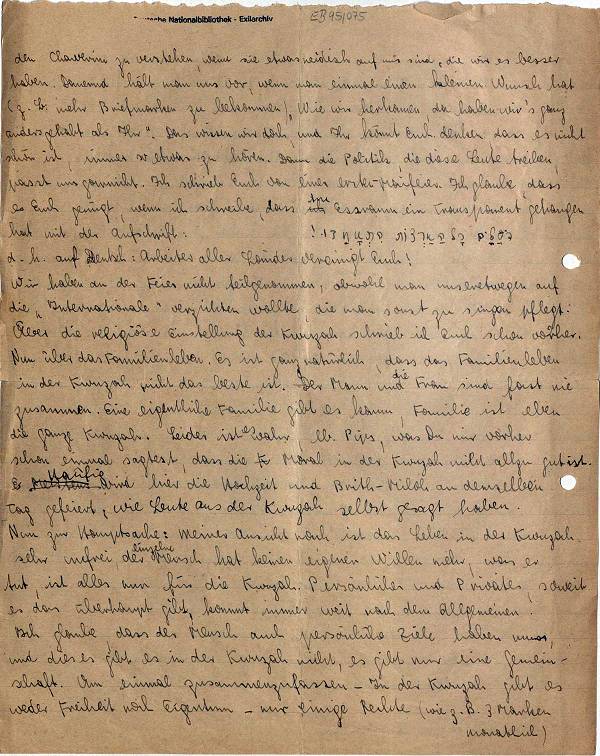 Deutsche Nationalbibliothek - Exilarchiv
EB 95/075
den Chawerim zu verstehen, wenn sie etwas neidisch auf uns sind, die wir es besser
haben. Dauernd hält man uns vor, wenn man einmal einen kleinen Wunsch hat
(z. B. mehr Briefmarken zu bekommen), „Wie wir herkamen, da haben wir's ganz
anders gehabt als Ihr". Das wissen wir doch, und Ihr könnt Euch denken dass es nicht
schön ist, immer so etwas zu hören. Dann die Politik, die diese Leute treiben,
passt uns garnicht. Ich schrieb Euch von einer ersten Maifeier. Ich glaube, dass
es Euch genügt, wenn ich schreibe, dass im Essraum ein Transparent gehangen
hat mit der Aufschrift:
d. h. auf Deutsch: Arbeiter aller Länder vereinigt Euch!
Wir haben an der Feier nicht teilgenommen, obwohl man unseretwegen auf
die „Internationale" verzichten wollte, die man sonst zu singen pflegt.
Über die religiöse Einstellung der Kwuzah schrieb ich Euch schon vorher.
Nun über das Familienleben. Es ist ganz natürlich, dass das Familienleben
in der Kwuzah nicht das beste ist. Der Mann und die Frau sind fast nie
zusammen. Eine eigentliche Familie gibt es kaum, Familie ist eben
die ganze Kwuzah. Leider ist es wahr lb. Pips, was Du mir vorher
schon einmal sagtest, dass die Moral in der Kwuzah nicht allzu gut ist.
Häufig wird hier die Hochzeit und Brith-Milah an demselben
Tag gefeiert, wie Leute aus der Kwuzah selbst gesagt haben.
Nun zur Hauptsache: Meiner Ansicht nach ist das Leben in der Kwuzah
sehr unfrei der einzelne Mensch hat keinen eigenen Willen mehr, was er
tut, ist alles nur für die Kwuzah. Persönliches und Privates, soweit
es das überhaupt gibt, kommt immer weit nach dem Allgemeinen!
Ich glaube, dass der Mensch auch persönliche Ziele haben muss,
und dieses gibt es in der Kwuzah nicht, es gibt nur eine Gemein-
schaft. Um einmal zusammenzufassen - In der Kwuzah gibt es
weder Freiheit noch Eigentum - nur einige Rechte (wie z. B. 3 Marken
monatlich)